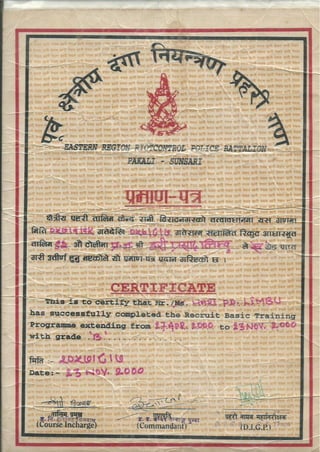 पूर्व क्षेत्रीय दंगा नियन्त्रण प्रहरी गण
EASTERN REGION RIOTCONTROL POLICE BATTALION
PAKALI - SUNSARI
प्रमाण-पत्र
क्षेत्रीय प्रहरी तालिम केन्द्र रानी विराटनगरको तत्वावधानमा यस गणमा
मिति गतेदेखि २०५७/८/८ गतेसम्म सञ्चालित रिक्रुट आधारभूत
तालिम औं टोलीमा प्र.ज. श्री हरी प्रसाद लिम्बु ले ग्रेड प्राप्त
गरी उत्तीर्ण हुनु भएकोले यो प्रमाण-पत्र प्रदान गरिएको छ ।
CERTIFICATE
This is to certify that Mr./Ms. HARI PD. LIMBU
has successfully completed the Recruit Basic Training
Programme extending from 27 APR. 2000 to 23 NOV. 2000
with grade 'B'
मिति :- २०५७/८/८
Date:- 23 NOV. 2000
तालिम प्रमुख
(Course Incharge)
(Commandant)
प्रहरी नायब महानिरीक्षक
(D.I.G.P.)